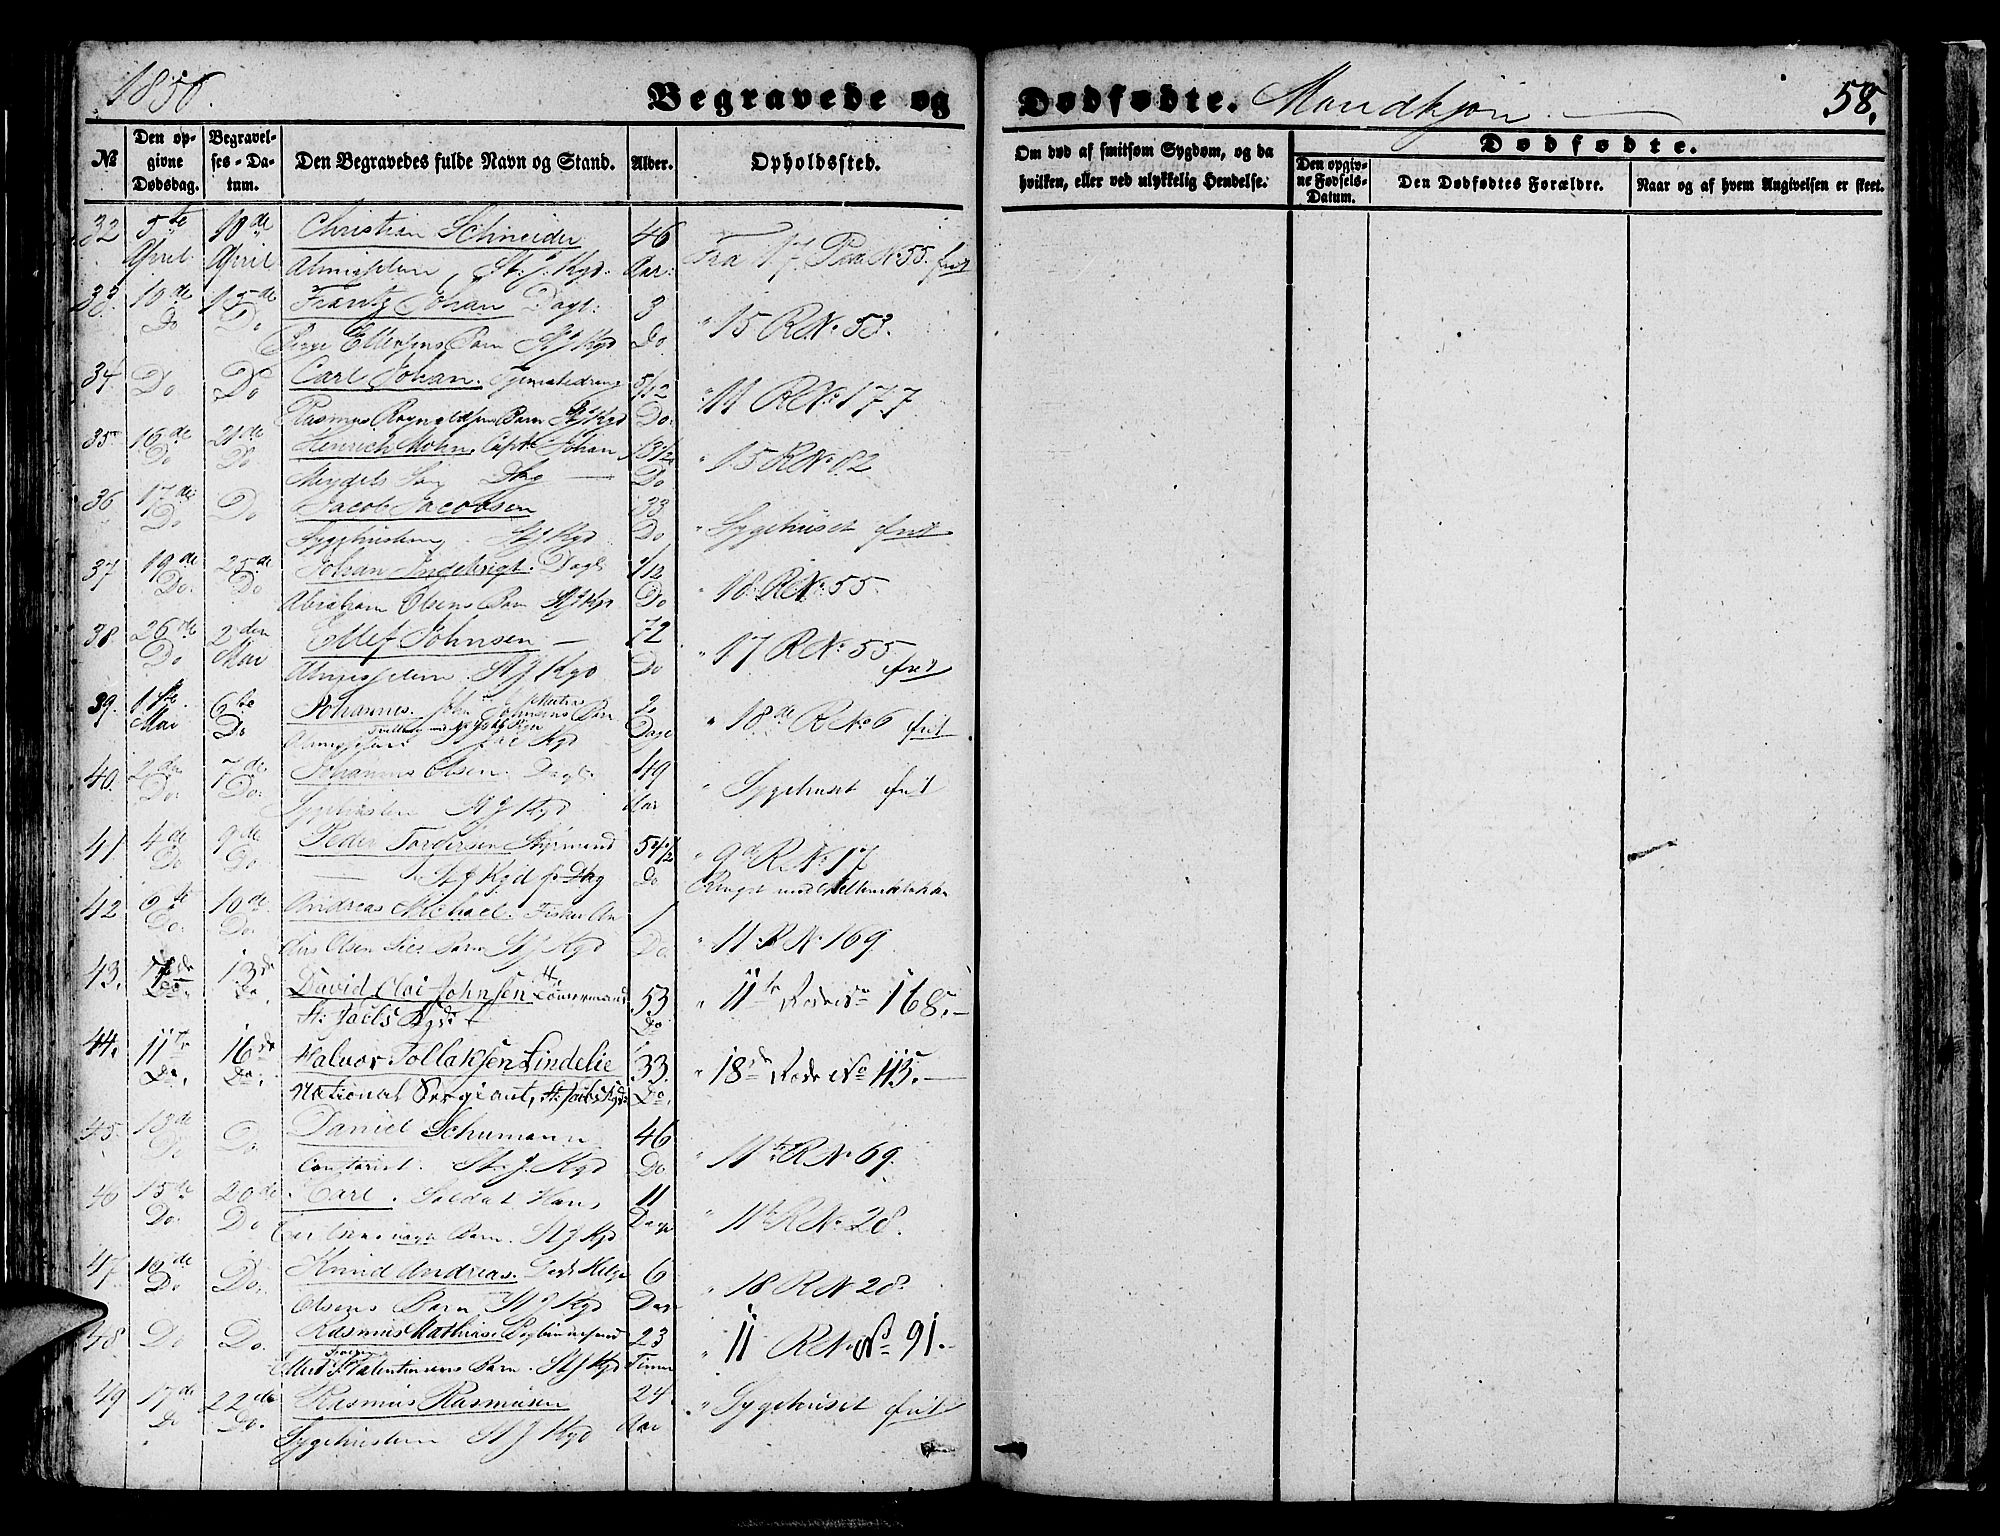 1850.
Begravede og Dødfødte. Mandkjøn. 58.
No
Den opgivne Dødsdag.
Begravelses-Datum.
Den Begravedes fulde Navn og Stand.
Alder.
Opholdssted.
Om død af smitsom Sygdom, og da hvilken, eller ved ulykkelig Hendelse.
Dødfødte.
Den opgivne Fødsels-Datum.
Den Dødfødtes Forældre.
Naar og af hvem Angivelsen er skeet.
32 5te 10de Christian Schneider 46 Fra 17 Rode No 55. frit
April April Almisselem, St. J. Kgd. Aar
33. 10de 15de Frantz Johan Dagl. 3 " 15 R No 53.
Do Do Ellefsens Barn St J Kgd Do
34 Do Do Carl Johan. 5/12 " 11 R No 177
Rasmus Barn St J Kgd Do
35 16de 21de Henrich Mohn, Capt Johan 13 1/2 " 15 R No 82
Do Do Meydels Søn Do
36 17de Do Jacob Jacobsen 33 " Sygehuset frit
Do Sygehuslem St J Kgd Do
37 19de 25de Johan Ingebrigt. Dagl. 1/12 " 18 R No 55
Do. Do Abraham Olsens Barn St J Kgd Do
38. 26de 2den Ellef Johnsen 72 " 17 R No 55 frit
Do Mai Almisselem. St J Kgd Do
39. 1ste 6te Johannes. John Johnsens Barn 2 " 18de R No 6 frit
Mai Do Kgd Dage
40. 2den 7de Johannes Olsen. Dagl. 49 " Sygehuset frit
Do. Do. Sygehuslem St J Kgd Aar
41 4de 9de Peder Tordersen Styrmand 54 1/2 " 9de R No 17
Do Do. St J Kgd Do
42 6te 10de Andreas Michael. Fisker An 1 " 11 R No 169
Do. Do. ders Olsen Barn St J Kgd Do.
43. 7de 13de David Olai Johnsen 53 " 11te Rode No 168.
Do. Do. St. Jacobs Kgd. Do
44. 11te 16de Halvor Tollaksen Lindelie 33. " 18de Rode No 115.
Do. Do. National Sergiant, St. Jacobs Kgd Do.
45. 13de Do Daniel Schumann 46 " 11te R No 69.
Do Contorist. St. J. Kgd Do
46 15de 20de Carl. Soldat Hans 11 " 11te R No 28.
Do. Do Barn. St J Kgd Dage
47 16de Do. Knud Andreas. Helge 6 " 18 R N 28.
Do Olsens Barn St J Kgd Dage
48 Do Do. Rasmus Mathias 23 " 11 R No 91.
Valentinsens Barn. St J Kgd Timer
49 17de 22de Rasmus Rasmusen 24 " Sygehuset frit
Do Do. Sygehuslem St J Kgd Aar